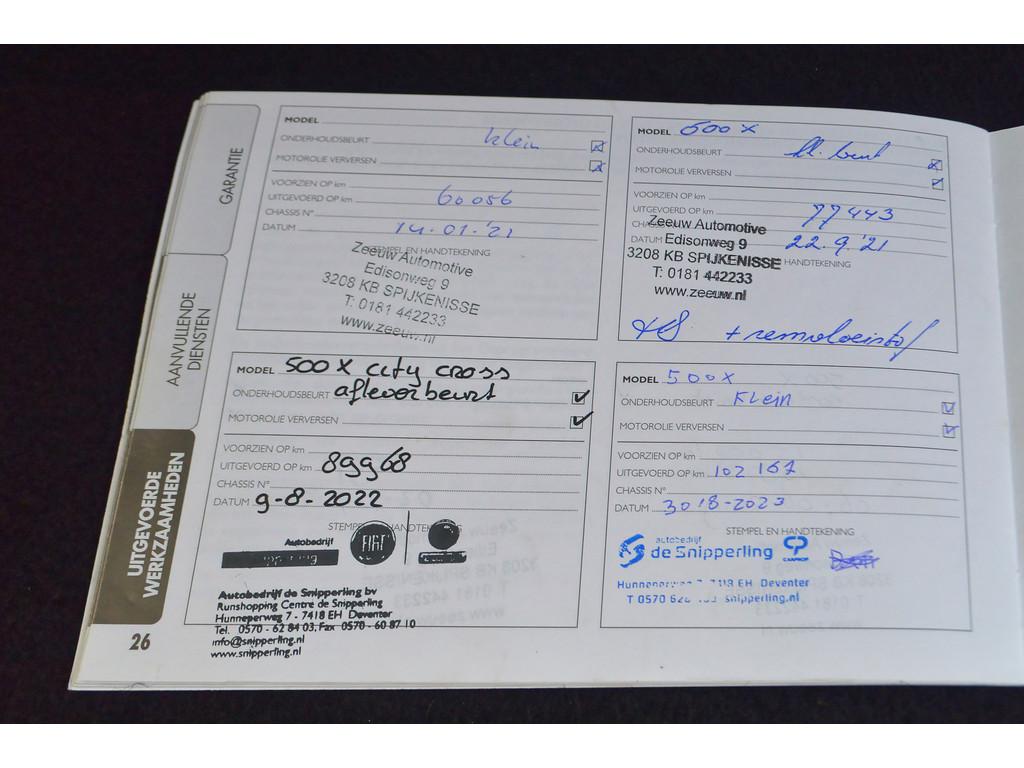 GARANTIE
AANVULLENDE
DIENSTEN
UITGEVOERDE
WERKZAAMHEDEN
26
MODEL
ONDERHOUDSBEURT klein
MOTOROLIE VERVERSEN
VOORZIEN OP km
UITGEVOERD OP km 60056
CHASSIS N°
DATUM 14-01-'21
STEMPEL EN HANDTEKENING
Zeeuw Automotive
Edisonweg 9
3208 KB SPIJKENISSE
T: 0181 442233
www.zeeuw.nl
MODEL 500X
ONDERHOUDSBEURT kl. beurt
MOTOROLIE VERVERSEN
VOORZIEN OP km
UITGEVOERD OP km 77443
CHASSIS N°
DATUM 22.9.'21
HANDTEKENING
Zeeuw Automotive
Edisonweg 9
3208 KB SPIJKENISSE
T: 0181 442233
www.zeeuw.nl
+ remvloeistof
MODEL 500X city cross
ONDERHOUDSBEURT afleverbeurt
MOTOROLIE VERVERSEN
VOORZIEN OP km
UITGEVOERD OP km 89968
CHASSIS N°
DATUM 9-8-2022
STEMPEL EN HANDTEKENING
Autobedrijf
FIAT
Autobedrijf de Snipperling bv
Runshopping Centre de Snipperling
Hunneperweg 7 - 7418 EH Deventer
Tel. 0570 - 62 84 03, Fax 0570 - 60 87 10
info@snipperling.nl
www.snipperling.nl
MODEL 500X
ONDERHOUDSBEURT Klein
MOTOROLIE VERVERSEN
VOORZIEN OP km
UITGEVOERD OP km 102167
CHASSIS N°
DATUM 3018-2023
STEMPEL EN HANDTEKENING
autobedrijf
de Snipperling
CARPROF
Hunneperweg 7 7418 EH Deventer
T 0570 snipperling.nl